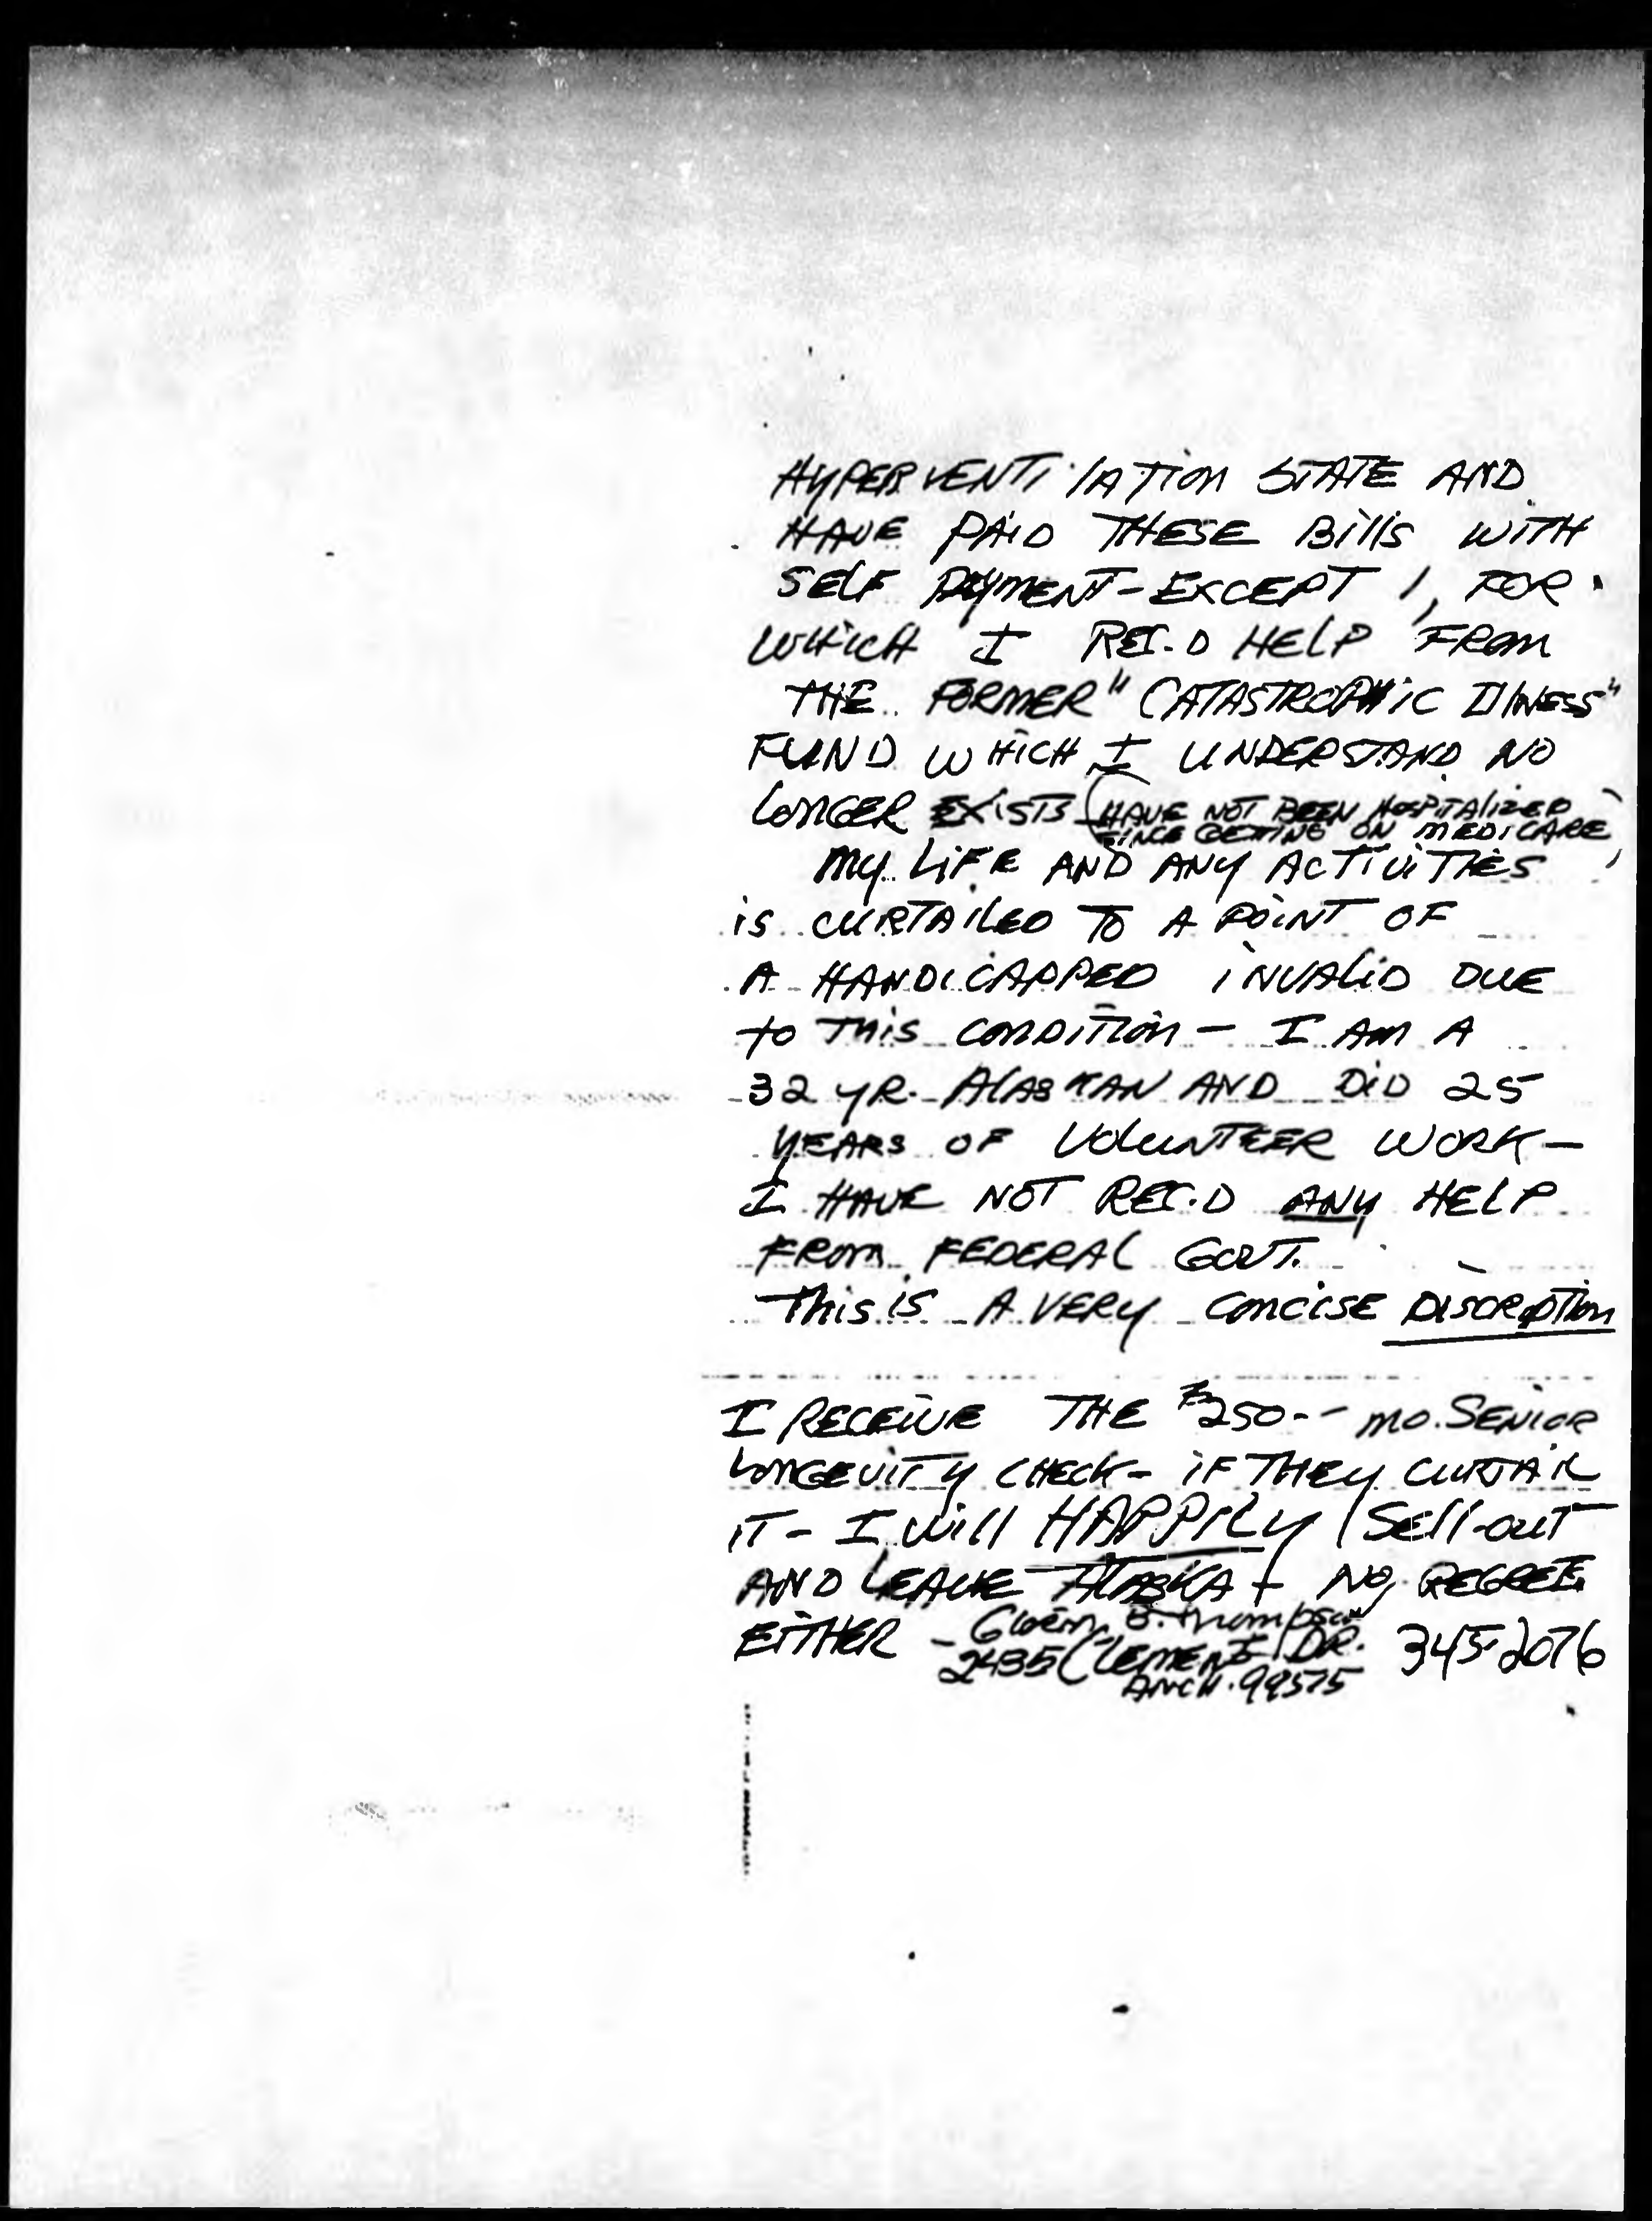 HYPERVENTILATION STATE AND
HAVE PAID THESE BILLS WITH
SELF PAYMENT - EXCEPT 1, FOR
WHICH I REC.D HELP FROM
THE FORMER "CATASTROPHIC ILLNESS"
FUND WHICH I UNDERSTAND NO
LONGER EXISTS (HAVE NOT BEEN HOSPITALIZED
SINCE GETTING ON MEDICARE)
MY LIFE AND ANY ACTIVITIES
IS CURTAILED TO A POINT OF
A HANDICAPPED INVALID DUE
TO THIS CONDITION - I AM A
32 YR. ALASKAN AND DID 25
YEARS OF VOLUNTEER WORK -
I HAVE NOT REC.D ANY HELP
FROM FEDERAL GOVT.
THIS IS A VERY CONCISE DISCRIPTION
I RECEIVE THE $250.- MO. SENIOR
LONGEVITY CHECK - IF THEY CURTAIL
IT - I WILL HAPPILY SELL-OUT
AND LEAVE ALASKA + NO REGRETS
EITHER - B. Thompson
2435 CLEMENTS DR. 345-2076
ANCH. 99575